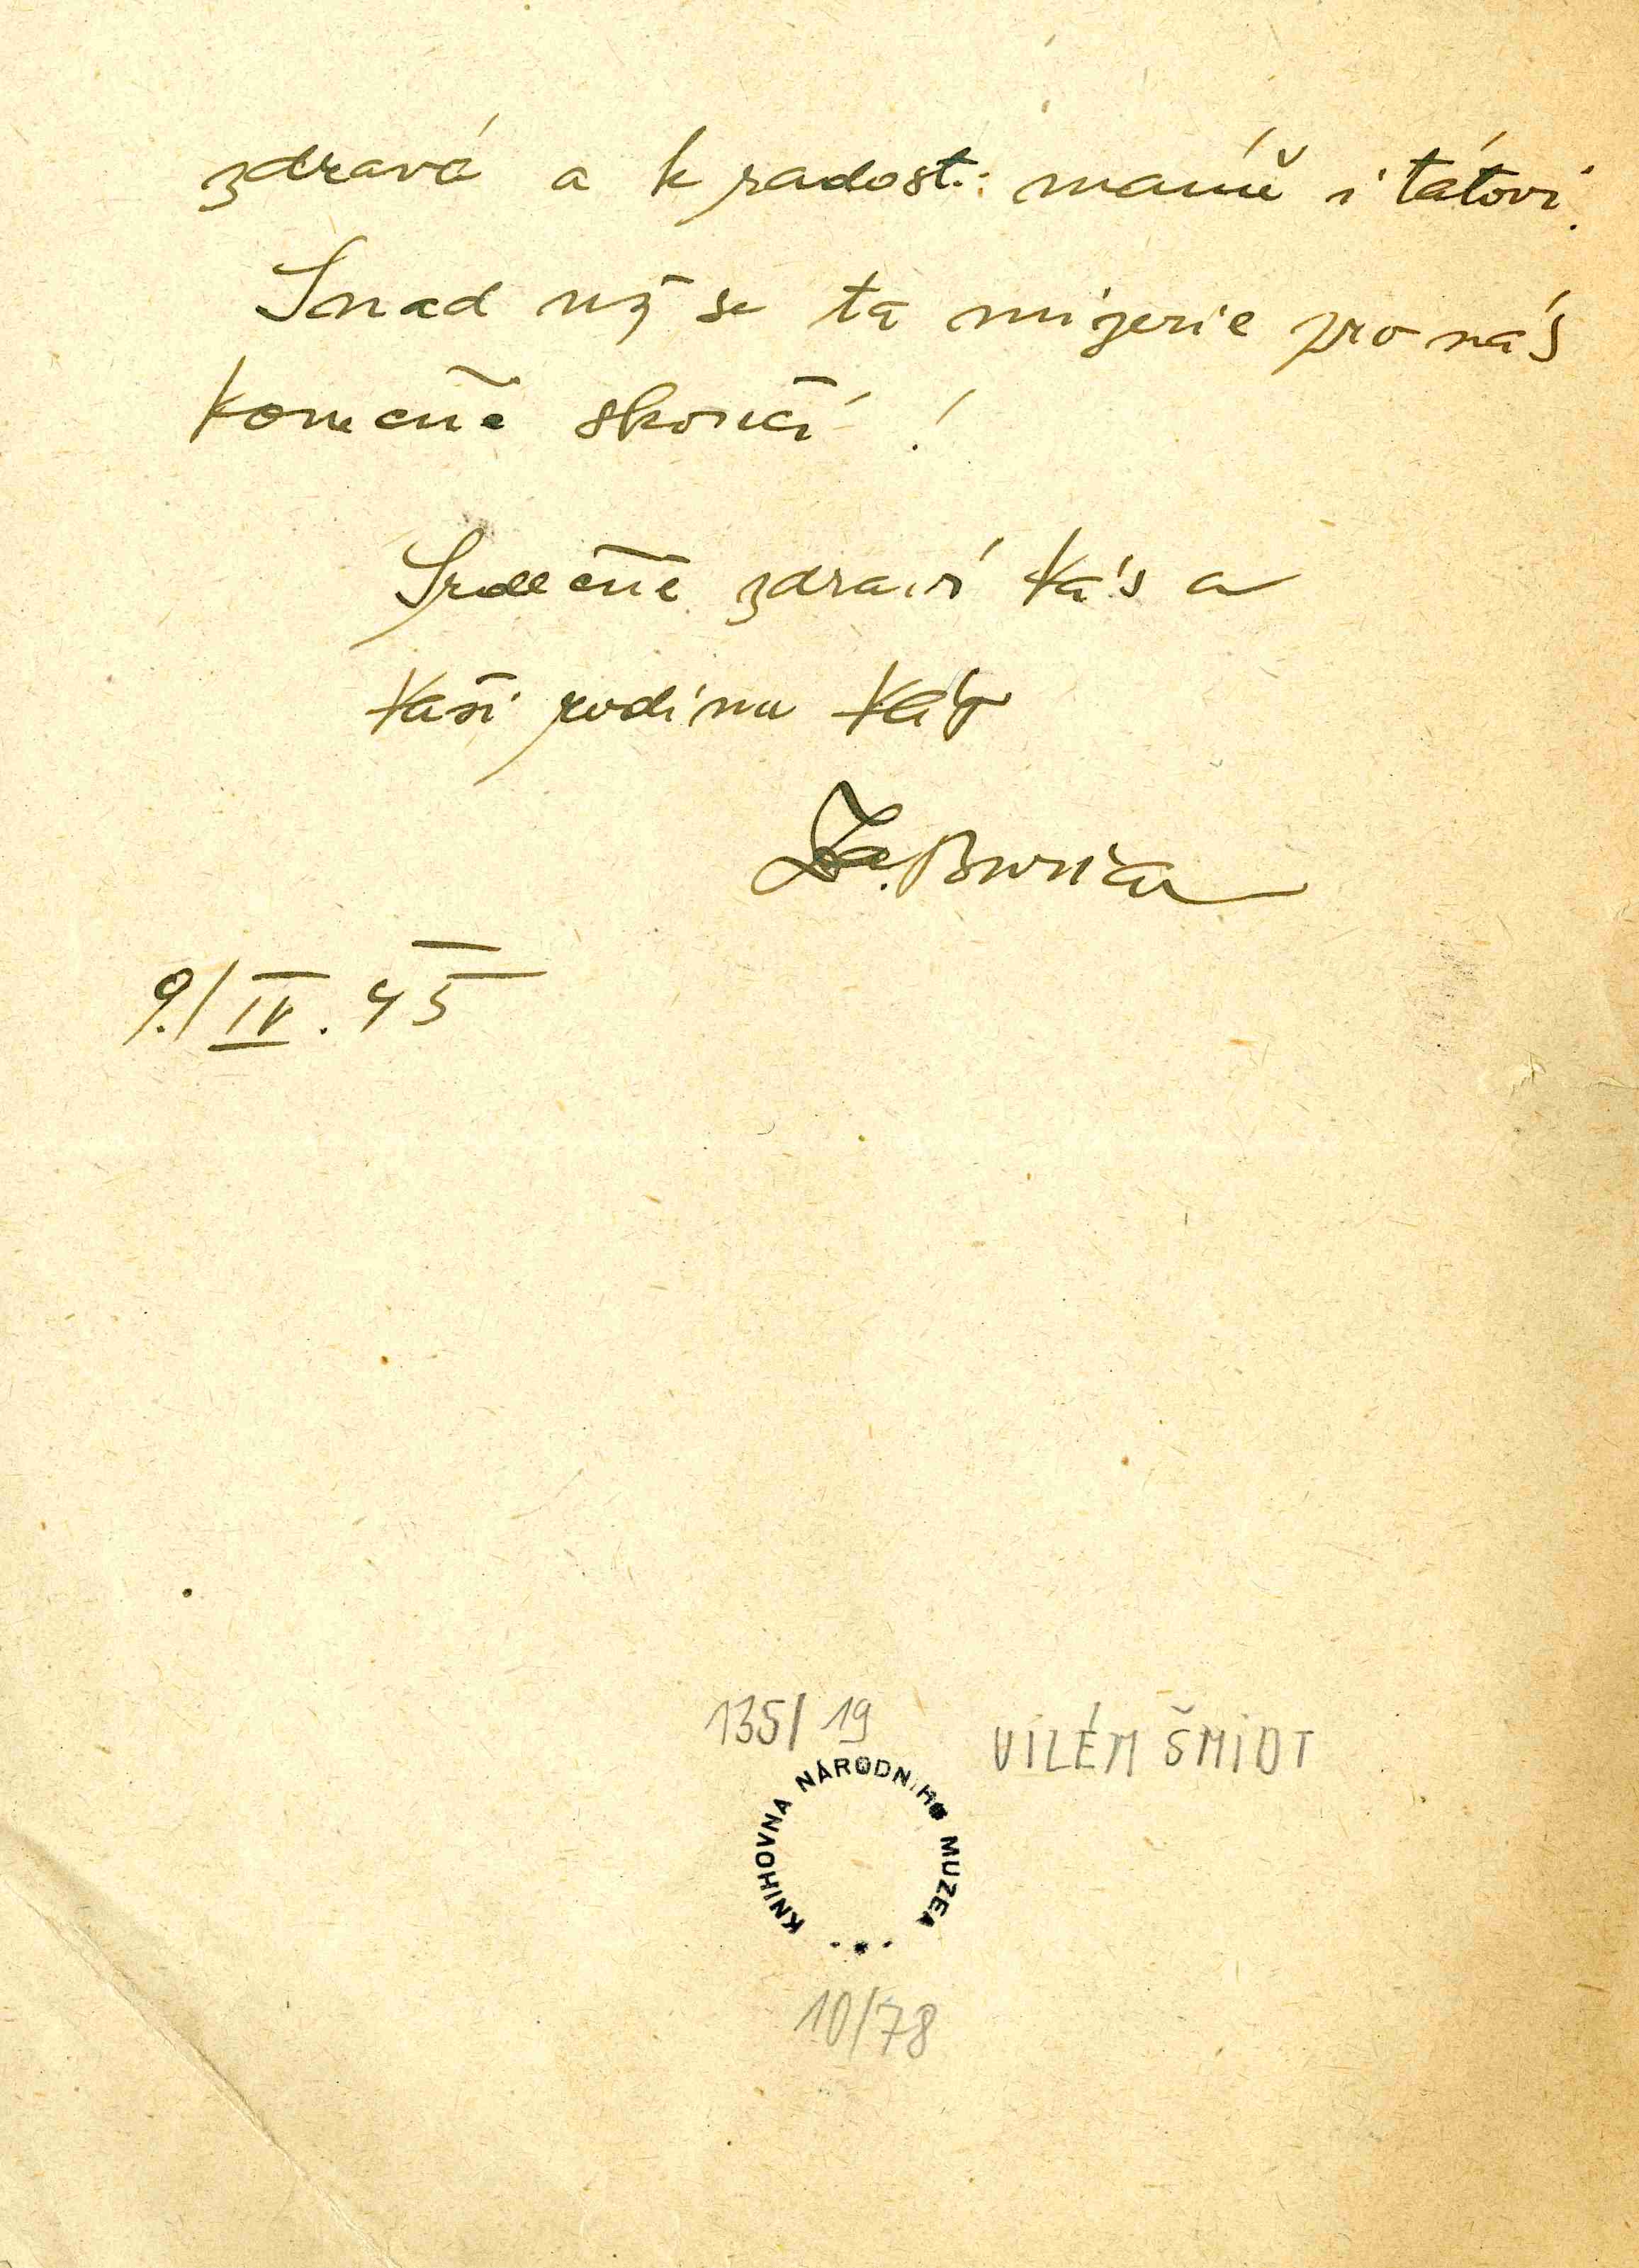 zdravá a k radosti mámě i tátovi.
Snad už se ta mizerie pro nás
konečně skončí!
Srdečně zdraví Vás a
Vaši rodinu Váš
Zd. Burian
9./IV. 45
135/19
VILÉM ŠMIDT
KNIHOVNA NÁRODNÍHO MUZEA
10/78